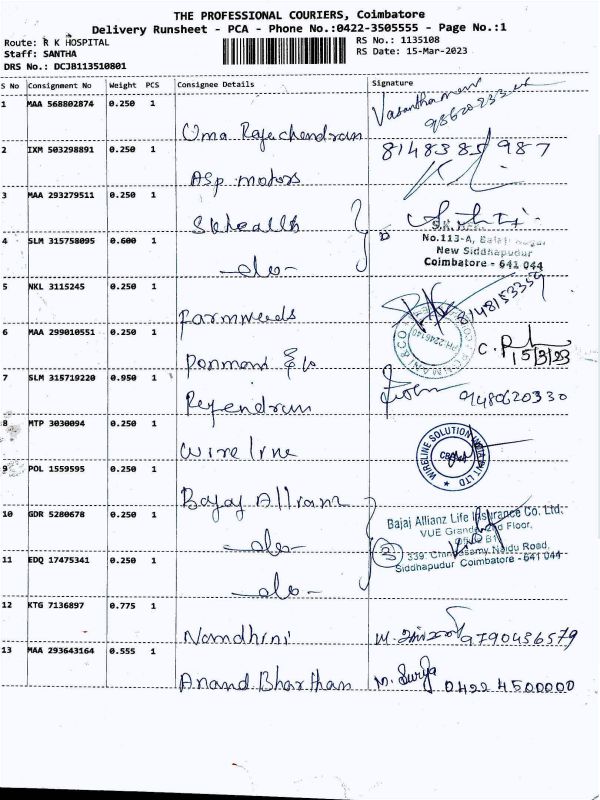 THE PROFESSIONAL COURIERS, Coimbatore
Delivery Runsheet - PCA - Phone No.:0422-3505555 - Page No.:1
Route: R K HOSPITAL
RS No.: 1135108
Staff: SANTHA
RS Date: 15-Mar-2023
DRS No.: DCJB113510801
S No Consignment No Weight PCS Consignee Details Signature
1 MAA 568802874 0.250 1
Uma Rajechendran
2 IXM 503298891 0.250 1 8148385987
Asp motors
3 MAA 293279511 0.250 1
4 SLM 315758095 0.600 1
No.113-A,
New Siddhapudur
Coimbatore - 641 044
-do-
5 NKL 3115245 0.250 1
Farmweeds
6 MAA 299010551 0.250 1
C. P
15/3/23
7 SLM 315719220 0.950 1
Rejendran 9480620330
8 MTP 3030094 0.250 1
WIRELINE SOLUTION INDIA PVT LTD
Wireline
9 POL 1559595 0.250 1
Bajaj Allianz
10 GDR 5280678 0.250 1
Bajaj Allianz Life Insurance Co. Ltd.
VUE Grande 2nd Floor,
-do-
11 EDQ 17475341 0.250 1
3
339. Chinnasamy Naidu Road,
Siddhapudur Coimbatore - 641 044
-do-
12 KTG 7136897 0.775 1
Namdhini 9790436579
13 MAA 293643164 0.555 1
Anand Bharthan M. Surya 0422 4500000